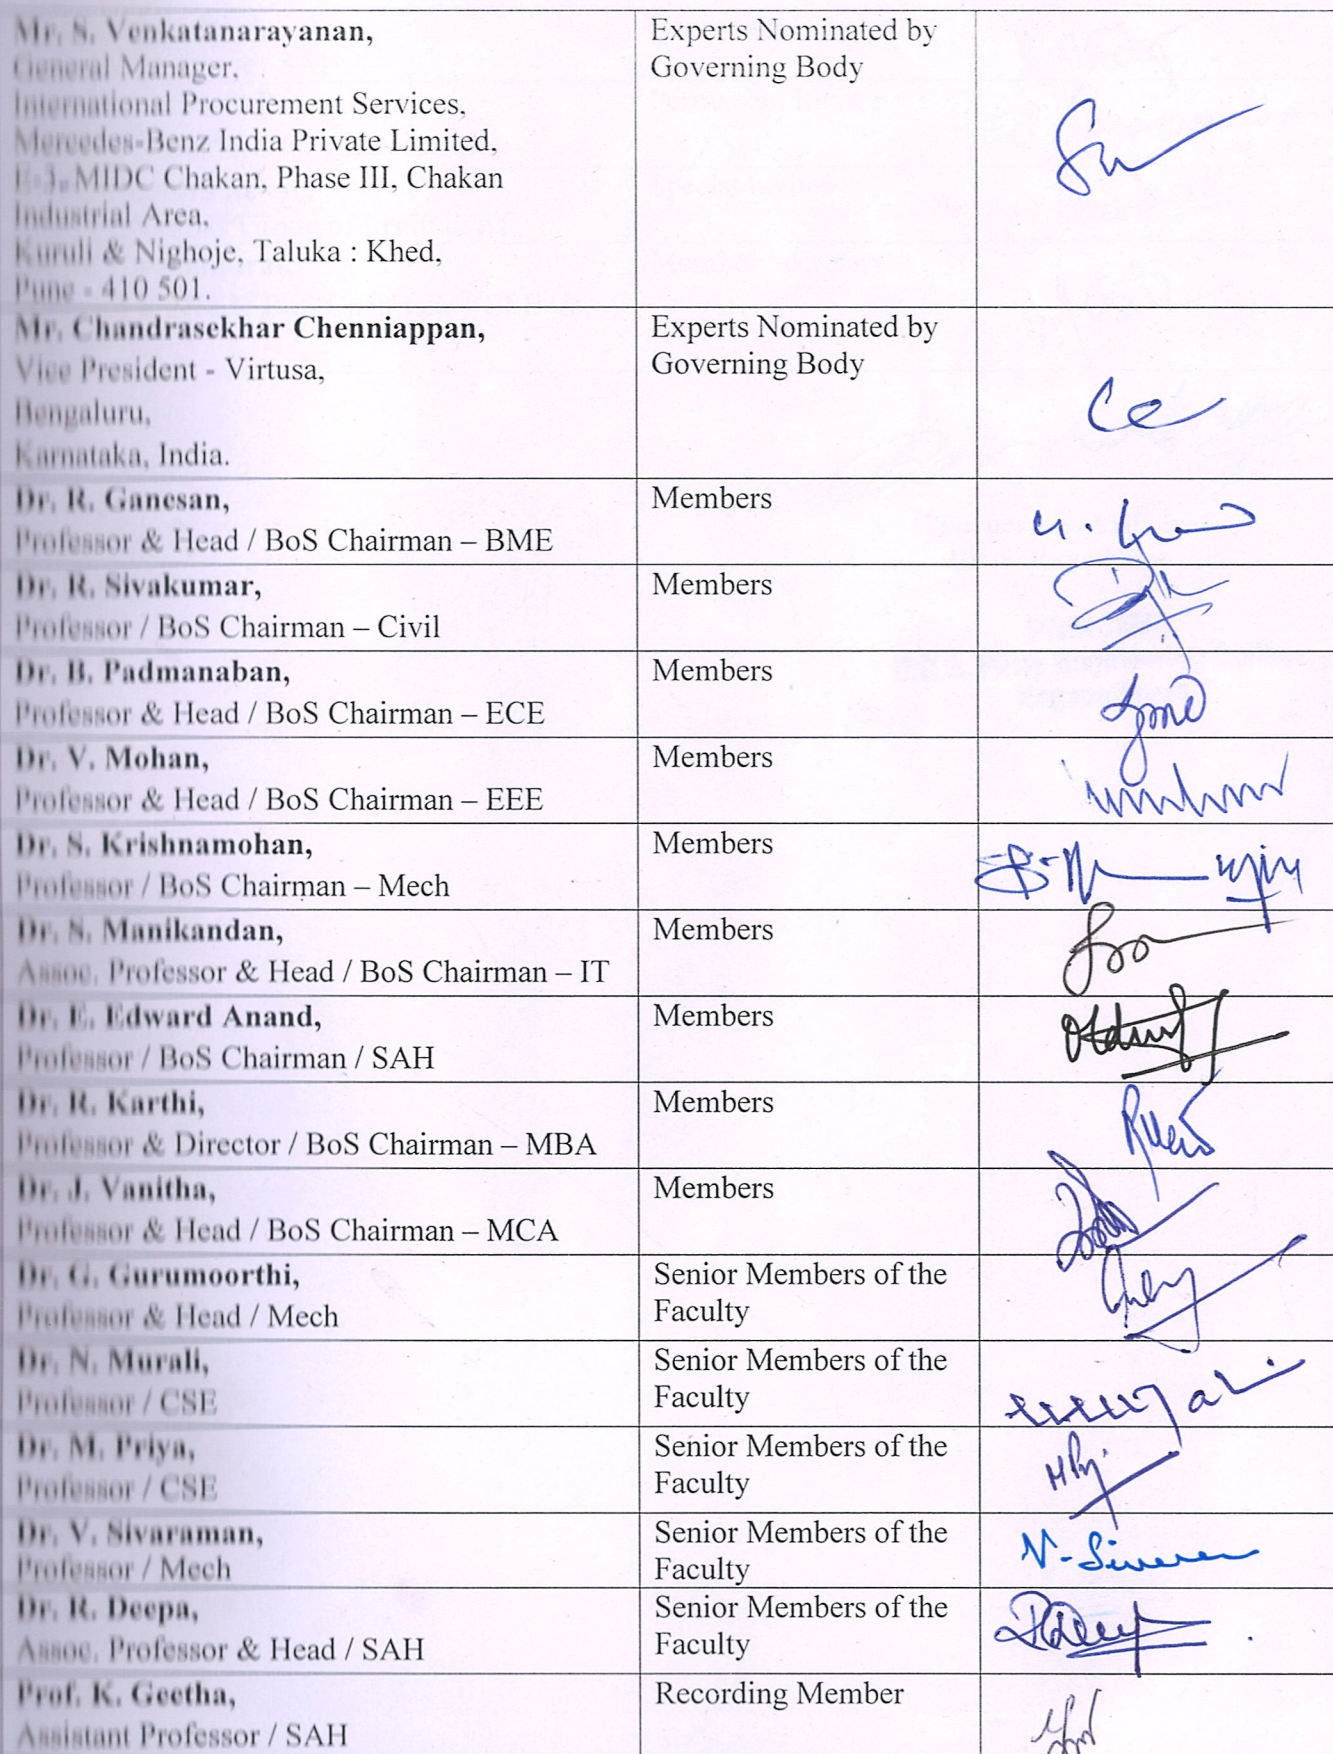 Mr. S. Venkatanarayanan,
General Manager,
International Procurement Services,
Mercedes-Benz India Private Limited,
E-3, MIDC Chakan, Phase III, Chakan
Industrial Area,
Kuruli & Nighoje, Taluka : Khed,
Pune - 410 501.
Experts Nominated by
Governing Body
Mr. Chandrasekhar Chenniappan,
Vice President - Virtusa,
Bengaluru,
Karnataka, India.
Experts Nominated by
Governing Body
Dr. R. Ganesan,
Professor & Head / BoS Chairman – BME
Members
Dr. R. Sivakumar,
Professor / BoS Chairman – Civil
Members
Dr. B. Padmanaban,
Professor & Head / BoS Chairman – ECE
Members
Dr. V. Mohan,
Professor & Head / BoS Chairman – EEE
Members
Dr. S. Krishnamohan,
Professor / BoS Chairman – Mech
Members
Dr. S. Manikandan,
Assoc. Professor & Head / BoS Chairman – IT
Members
Dr. E. Edward Anand,
Professor / BoS Chairman / SAH
Members
Dr. R. Karthi,
Professor & Director / BoS Chairman – MBA
Members
Dr. J. Vanitha,
Professor & Head / BoS Chairman – MCA
Members
Dr. G. Gurumoorthi,
Professor & Head / Mech
Senior Members of the
Faculty
Dr. N. Murali,
Professor / CSE
Senior Members of the
Faculty
Dr. M. Priya,
Professor / CSE
Senior Members of the
Faculty
Dr. V. Sivaraman,
Professor / Mech
Senior Members of the
Faculty
Dr. R. Deepa,
Assoc. Professor & Head / SAH
Senior Members of the
Faculty
Prof. K. Geetha,
Assistant Professor / SAH
Recording Member